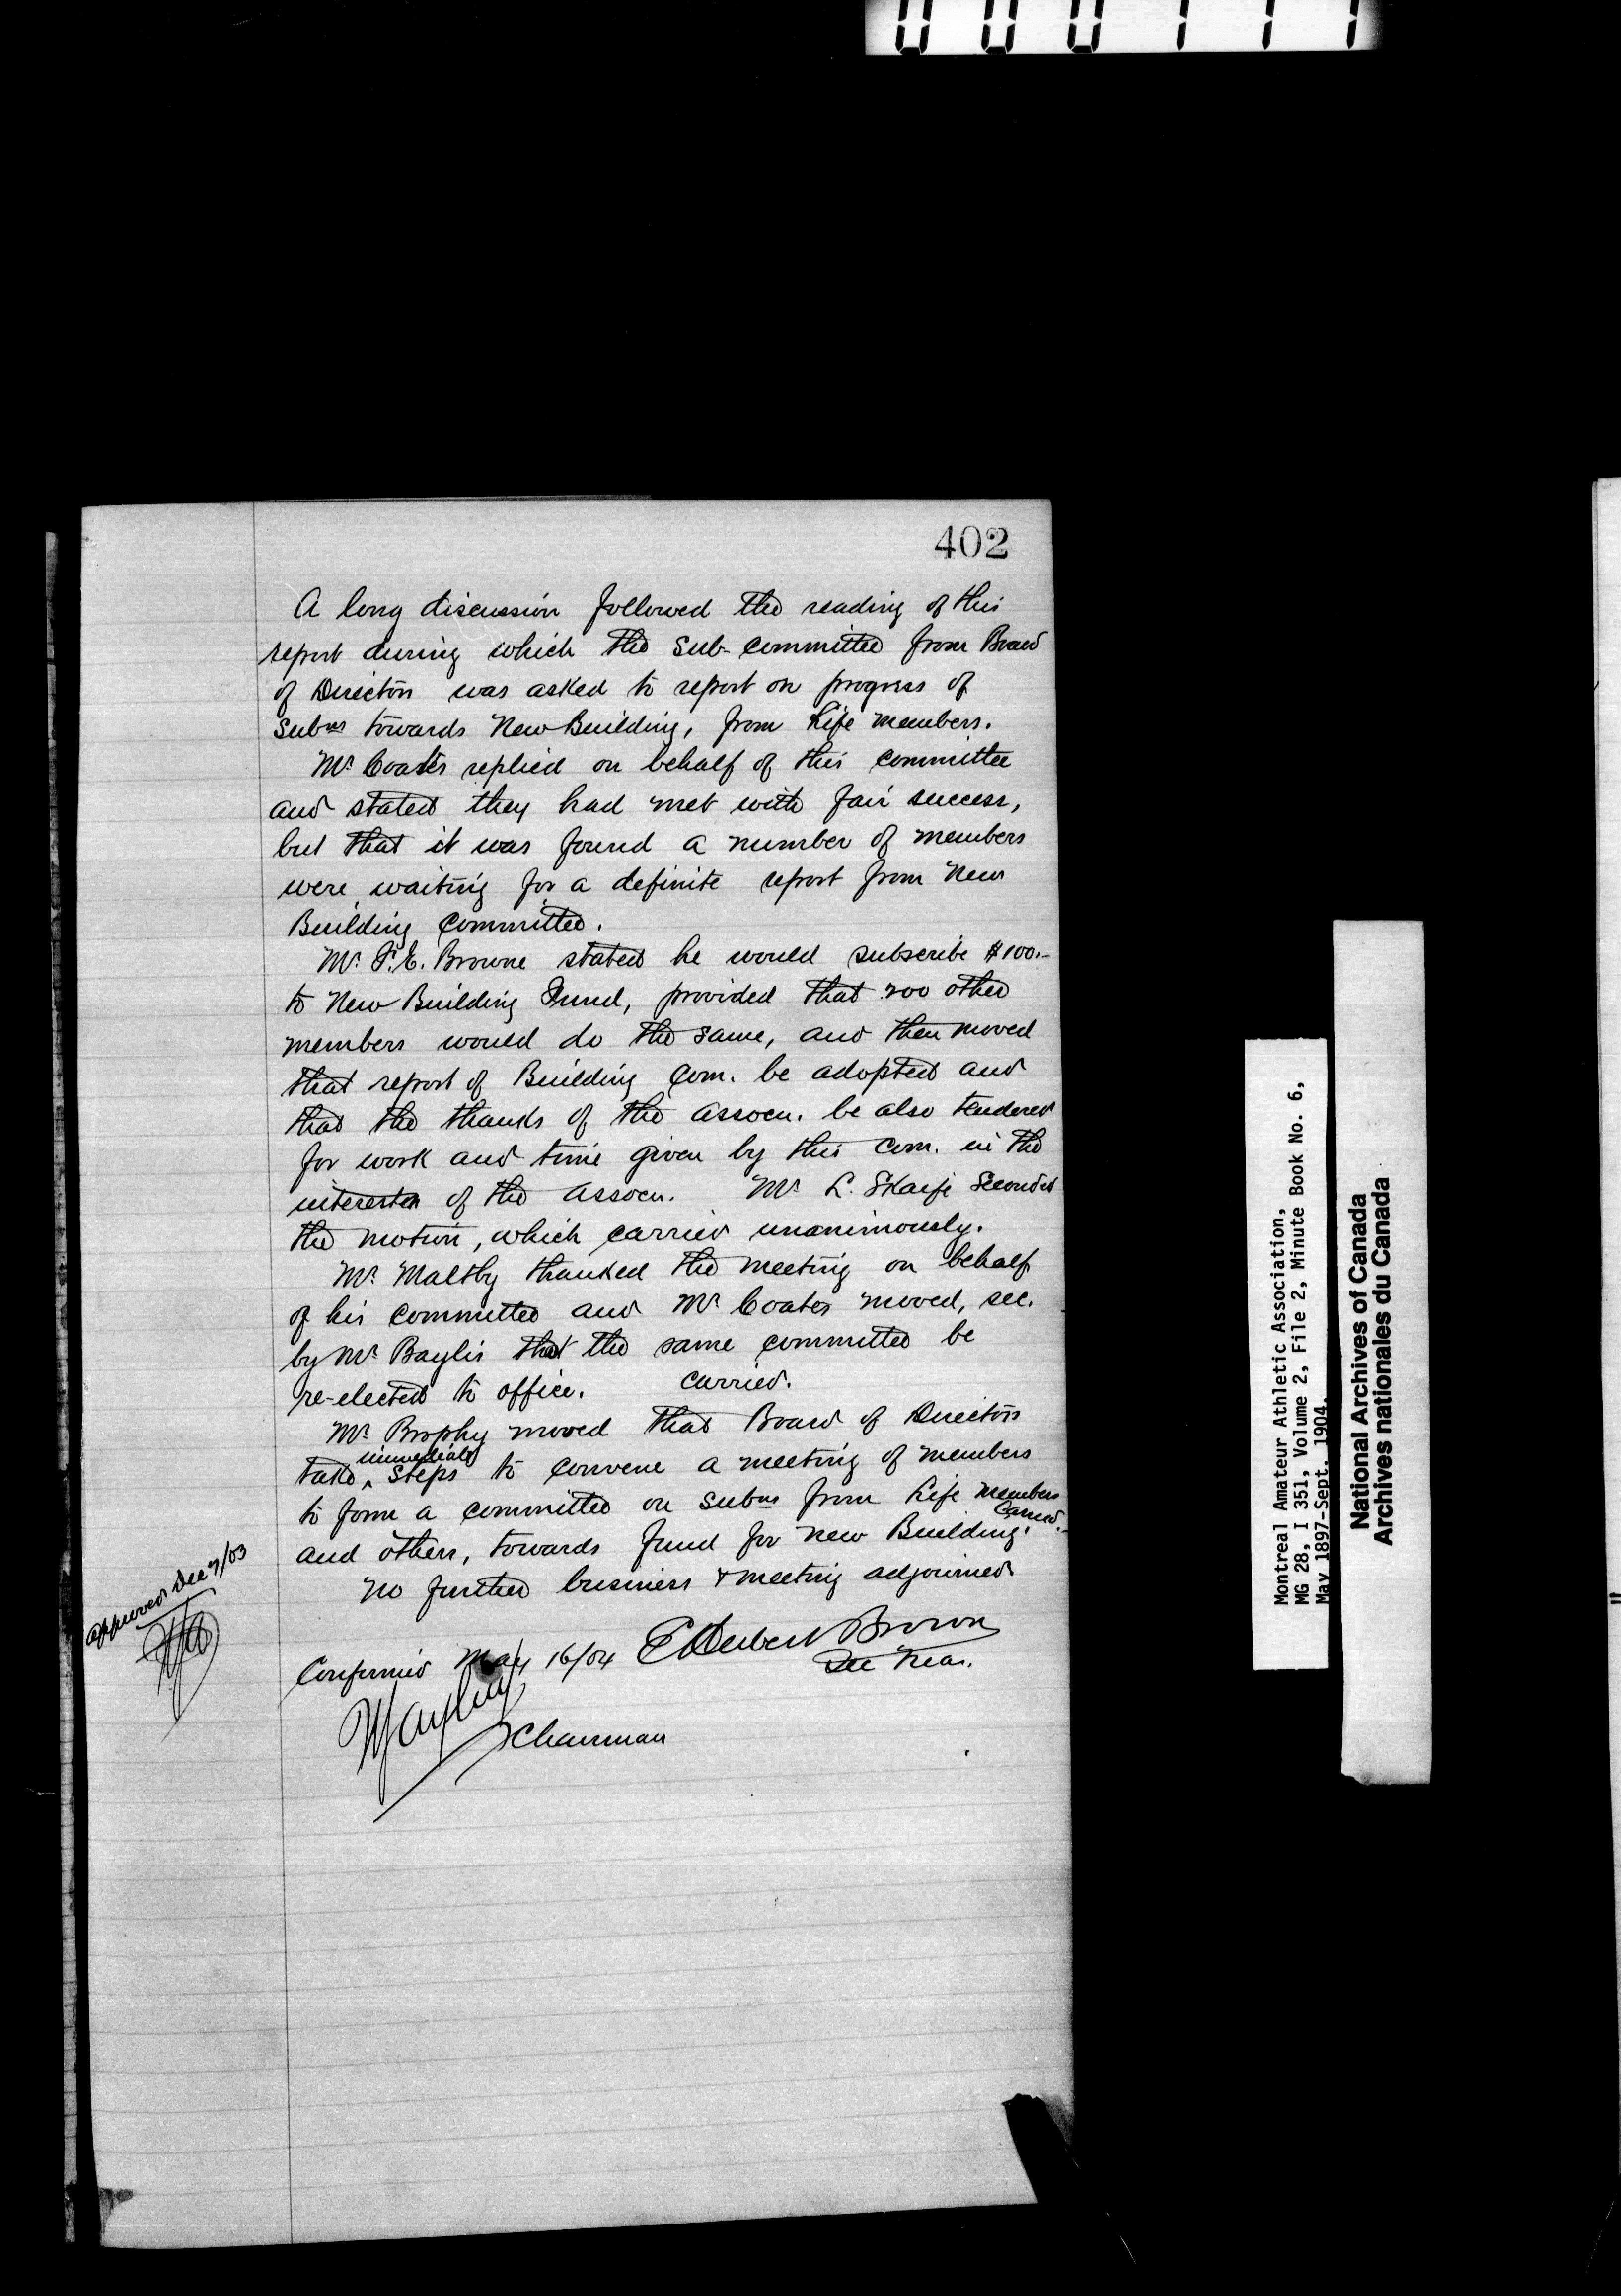 402
A long discussion followed the reading of this
report during which the Sub-Committee from Board
of Directors was asked to report on progress of
Subns towards New Building, from Life Members.
Mr Coates replied on behalf of this committee
and stated they had met with fair success,
but that it was found a number of members
were waiting for a definite report from New
Building Committee.
Mr F.E. Browne stated he would subscribe $100.-
to New Building Fund, provided that 200 other
members would do the same, and then moved
that report of Building Com. be adopted and
that the thanks of the Assocn. be also tendered
for work and time given by this Com. in the
interest of the Assocn. Mr L. Skaife Seconded
the motion, which carried unanimously.
Mr Maltby thanked the meeting on behalf
of his committee and Mr Coates moved, sec.
by Mr Baylis that the same committee be
re-elected to office. Carried.
Mr Brophy moved that Board of Directors
take immediate steps to convene a meeting of members
to form a committee on Subns from Life Members
and others, towards fund for New Building. Carried.-
No further business & meeting adjourned
approved Dec 7/03
Confirmed May 16/04
E Herbert Brown
Sec Treas.
Chairman
Montreal Amateur Athletic Association,
MG 28, I 351, Volume 2, File 2, Minute Book No. 6,
May 1897-Sept. 1904.
National Archives of Canada
Archives nationales du Canada